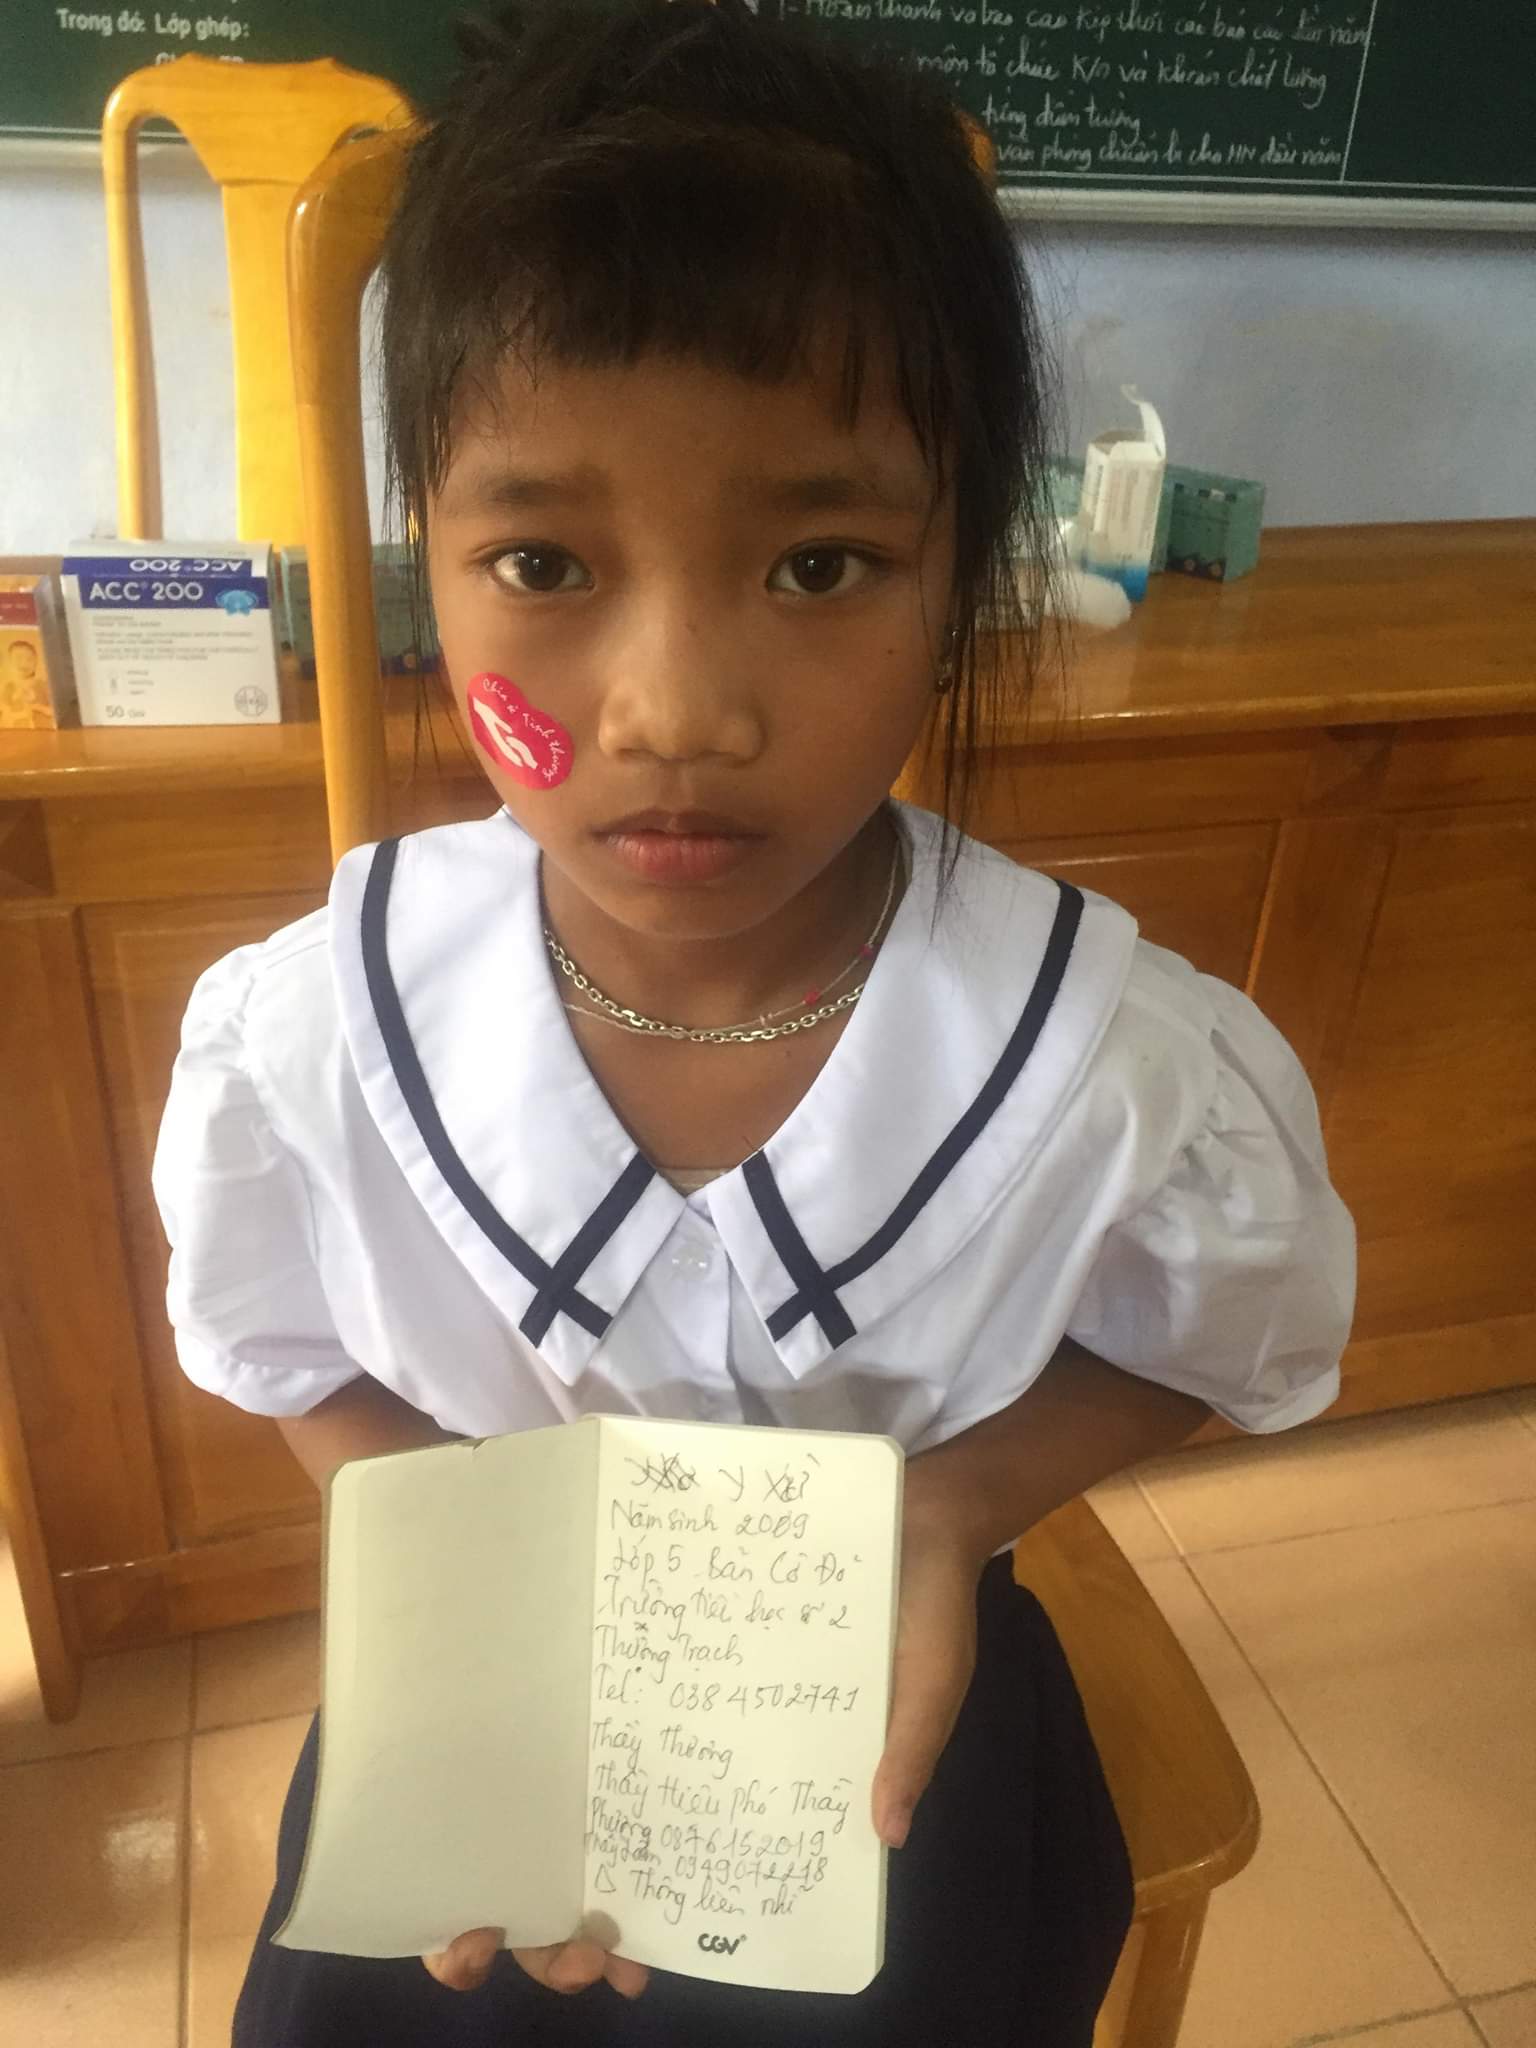 Trong đó: Lớp ghép:
1- Hoàn thành và báo cáo kịp thời các báo cáo đầu năm.
môn tổ chức K/n và khảo chất lượng
văn phòng chuẩn bị cho HN đầu năm
ACC 200
ACC® 200
50 Gói
Chia sẻ tình thương
Y Xửi
Năm sinh 2009
Lớp 5 Bản Cờ Đỏ
Trường tiểu học số 2
Thượng Trạch
Tel: 038 4502741
Thầy Thương
Thầy Hiệu phó Thầy
Phương 0876152019
Thầy 0949072278
Thông liên nhĩ
CGV